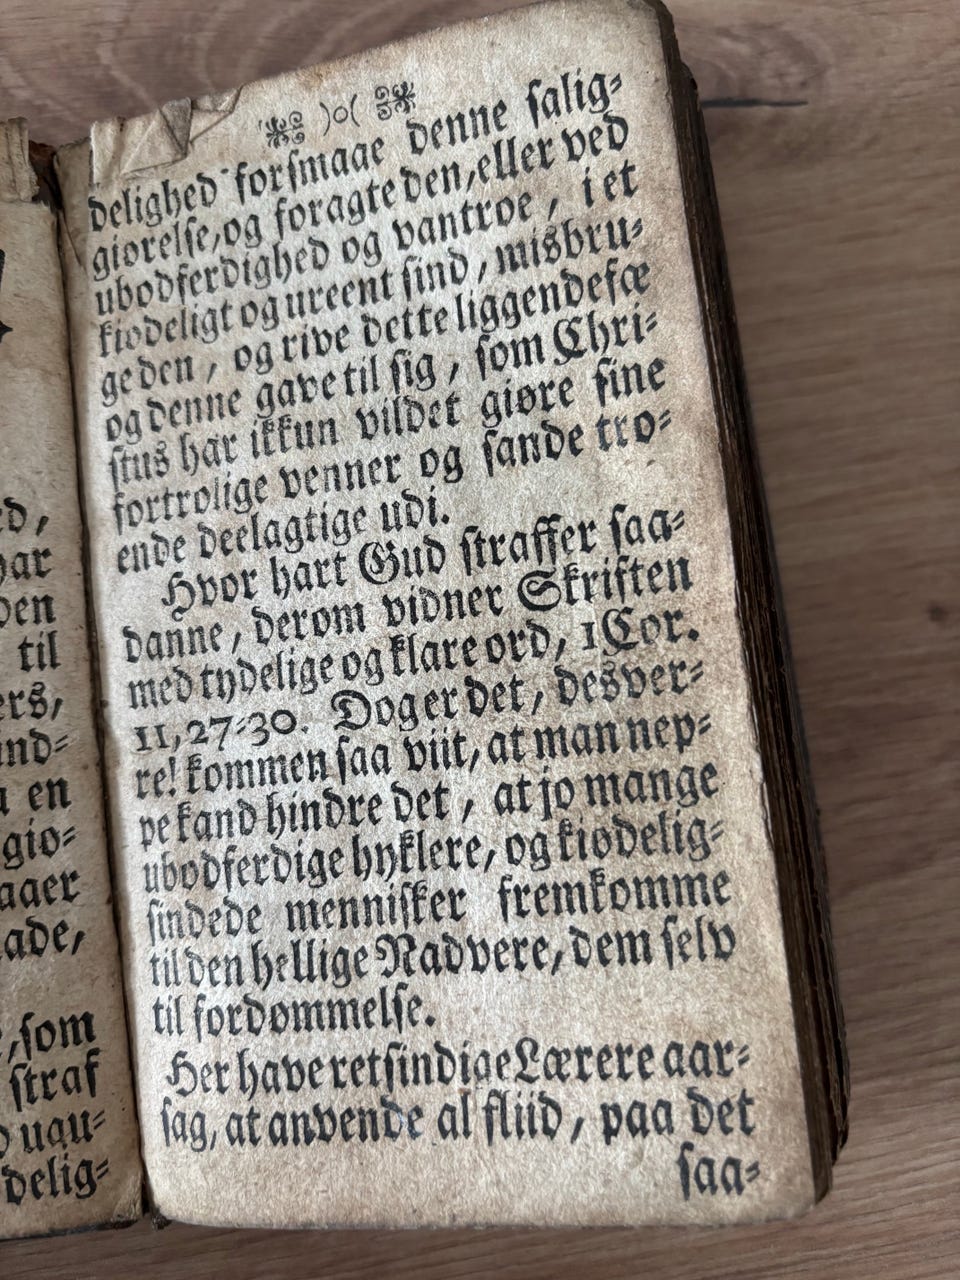 )o(
delighed forsmaae denne salig-
giørelse, og foragte den, eller ved
ubodferdighed og vantroe, i et
kiødeligt og ureent sind, misbru-
ge den, og rive dette liggendefæ
og denne gave til sig, som Chri-
stus har ikkun vildet giøre sine
fortrolige venner og sande tro-
ende deelagtige udi.
Hvor hart Gud straffer saa-
danne, derom vidner Skriften
med tydelige og klare ord, 1 Cor.
11, 27-30. Dog er det, desver-
re! kommen saa viit, at man nep-
pe kand hindre det, at jo mange
ubodferdige hyklere, og kiødelig-
sindede mennisker fremkomme
til den hellige Nadvere, dem selv
til fordømmelse.
Her have retsindige Lærere aar-
sag, at anvende al fliid, paa det
saa-
ed,
har
den
til
ers,
ind-
en
gio-
aaer
aade,
, som
straf
ugu-
delig-